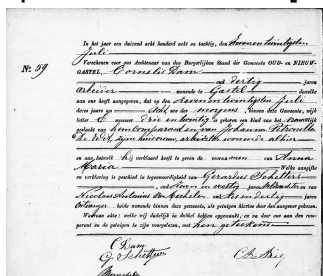 In het jaar een duizend acht honderd acht en tachtig, den zeven en twintigsten
Juli
Verscheen voor ons Ambtenaar van den Burgerlijken Stand der Gemeente OUD- en NIEUW-
No. 59
GASTEL, Cornelis Dam
oud dertig jaren
arbeider wonende te Gastel dewelke
aan ons heeft aangegeven, dat op den zeven en twintigsten Juli
dezes jaars om acht ure des morgens, binnen deze Gemeente, wijk
letter C nummer drie en twintig is geboren een kind van het vrouwelijk
geslacht van hem Comparant en van Johanna Petronella
de Wit, zijne huisvrouw, arbeidster, wonende alhier
en aan hetwelk hij verklaard heeft te geven de voornamen van Anna
Maria Welke aangifte
en verklaring is geschied in tegenwoordigheid van Gerardus Schetters
oud en veertig jaren en van
Nicolaas Antonius van Mechelen oud zes en dertig jaren
Ontvanger beide wonende binnen deze gemeente, als getuigen hiertoe door den aangever gekozen.
Waarvan akte: welke wij dadelijk in dubbel hebben opgemaakt, en na door ons aan den com-
parant en de getuigen te zijn voorgelezen, met hen geteekend
C Dam
G. Schetters